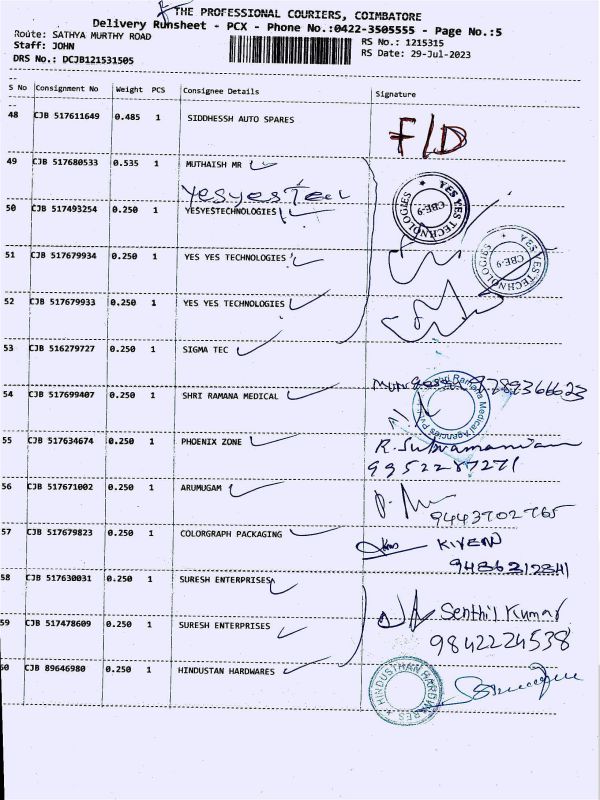 THE PROFESSIONAL COURIERS, COIMBATORE
Delivery Runsheet - PCX - Phone No.:0422-3505555 - Page No.:5
Route: SATHYA MURTHY ROAD
Staff: JOHN
DRS No.: DCJB121531505
RS No.: 1215315
RS Date: 29-Jul-2023
S No Consignment No Weight PCS Consignee Details Signature
48 CJB 517611649 0.485 1 SIDDHESSH AUTO SPARES F/D
49 CJB 517680533 0.535 1 MUTHAISH MR
yesyes Tech
50 CJB 517493254 0.250 1 YESYESTECHNOLOGIES
YES YES TECHNOLOGIES CBE-9
51 CJB 517679934 0.250 1 YES YES TECHNOLOGIES
YES YES TECHNOLOGIES CBE-9
52 CJB 517679933 0.250 1 YES YES TECHNOLOGIES
53 CJB 516279727 0.250 1 SIGMA TEC
9789366623
54 CJB 517699407 0.250 1 SHRI RAMANA MEDICAL
Ramana Medical Agencies
55 CJB 517634674 0.250 1 PHOENIX ZONE R. Subramanian
9952287271
56 CJB 517671002 0.250 1 ARUMUGAM
9443702765
57 CJB 517679823 0.250 1 COLORGRAPH PACKAGING
9486312841
58 CJB 517630031 0.250 1 SURESH ENTERPRISES
Senthil Kumar
59 CJB 517478609 0.250 1 SURESH ENTERPRISES
9842224538
60 CJB 89646980 0.250 1 HINDUSTAN HARDWARES
HINDUSTHAN HARDWARES